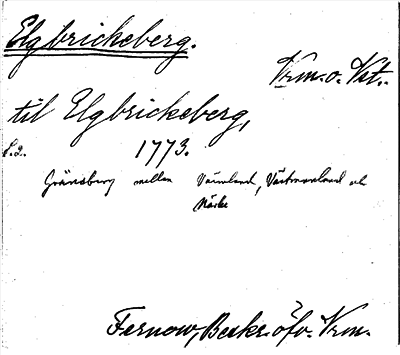 Elgbrickeberg.
Vrm. o. Vst.
til Elgbrickeberg,
s. 2. 1773.
Gränsberg mellan Värmland, Västmanland och
Närke
Fernow, Beskr. öfv. Vrm.